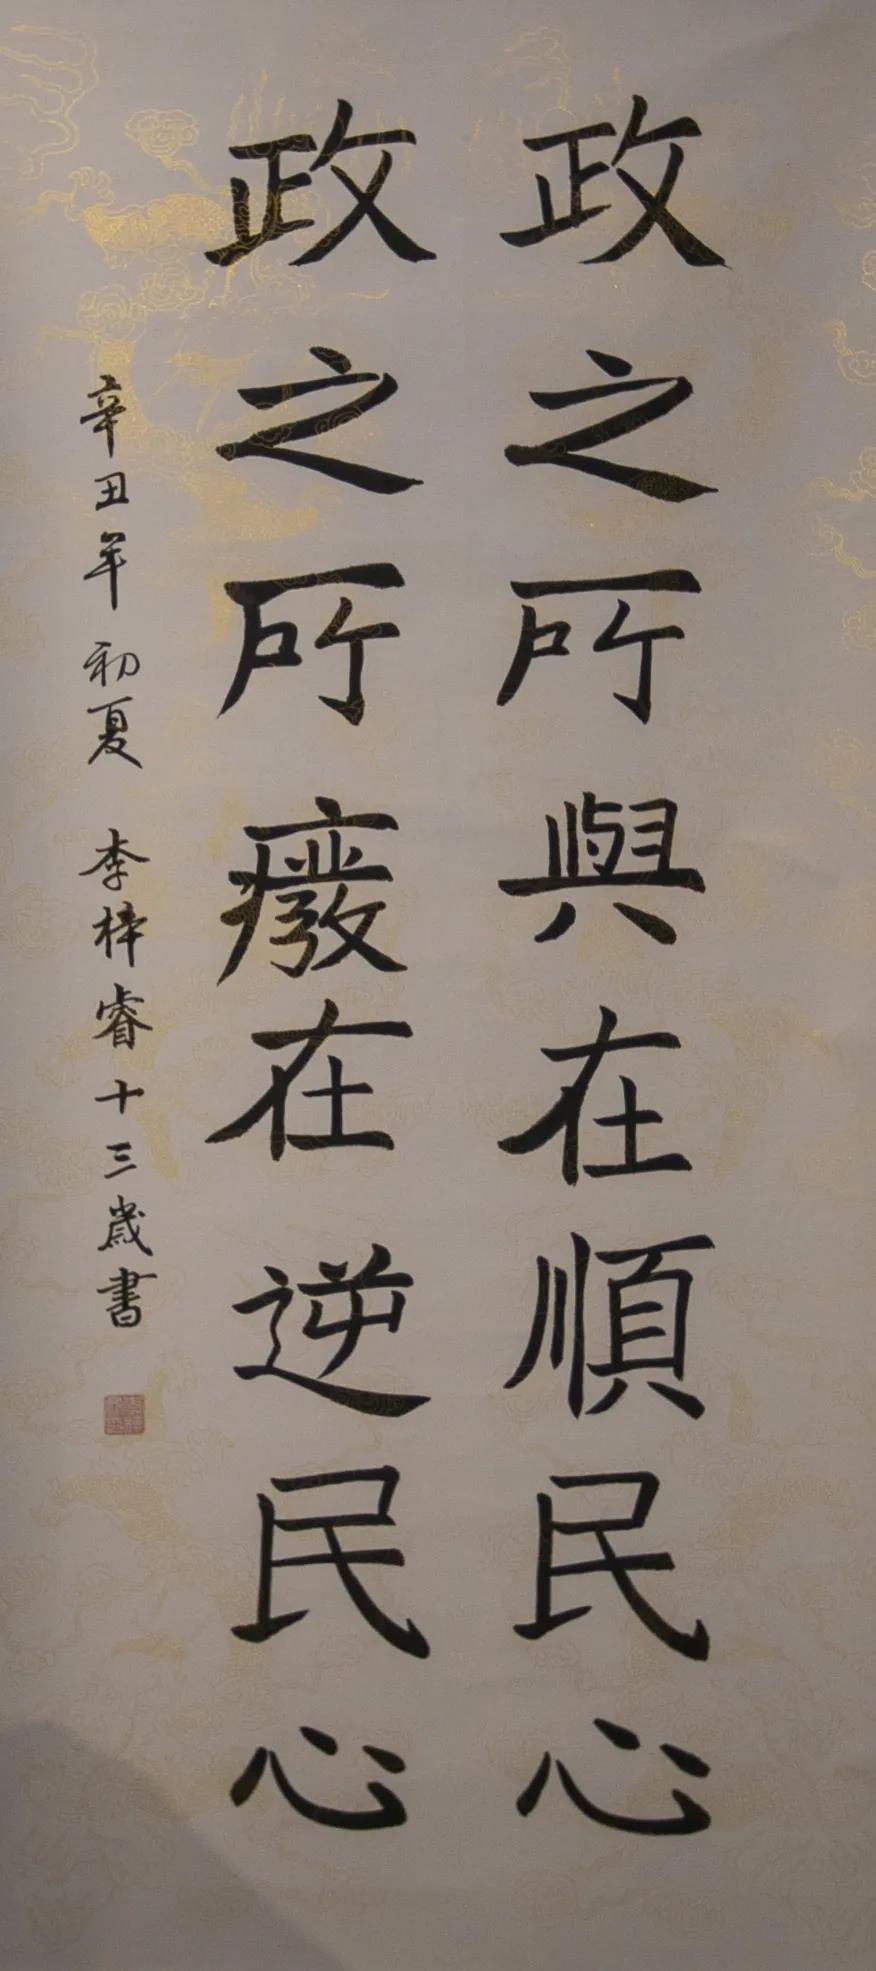 政之所與在順民心
政之所癈在逆民心
辛丑年初夏 李梓睿十三歲書